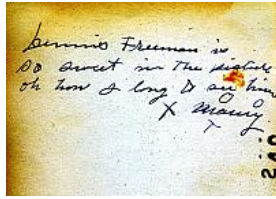 Dennis Freeman is
so sweet in the picture
oh how I long to see him
X Mommy
X